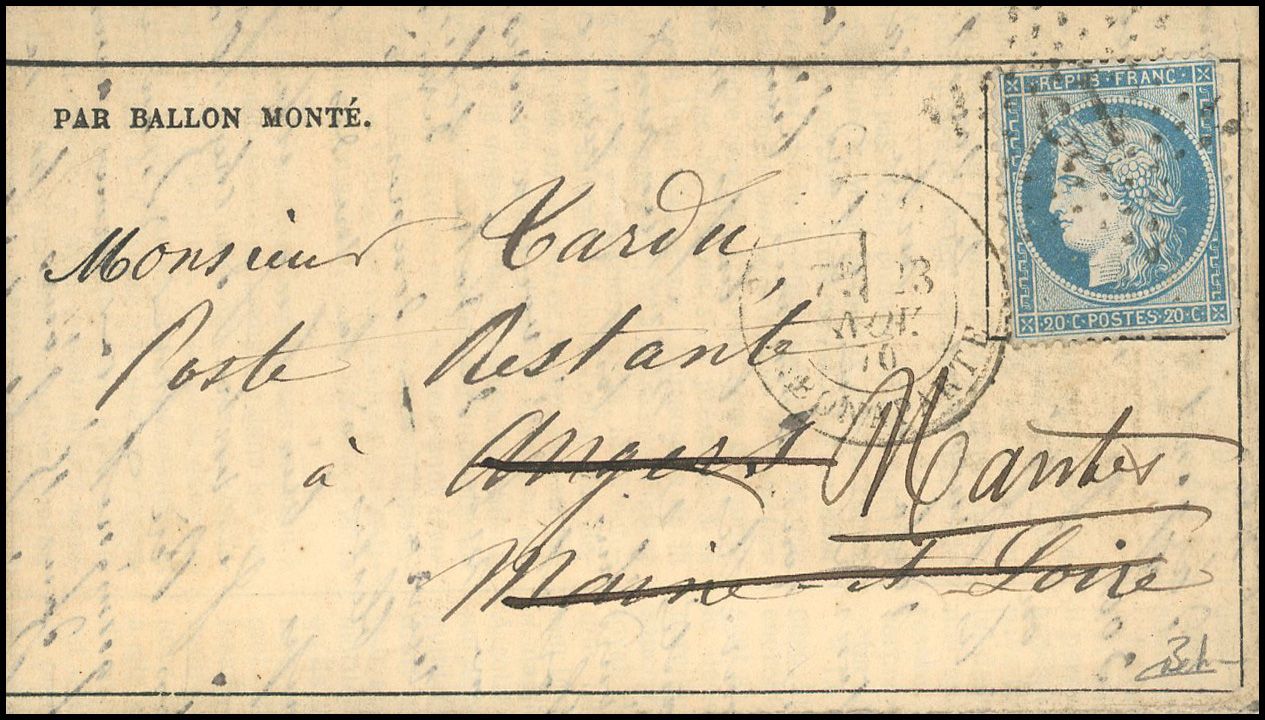 PAR BALLON MONTÉ.
REPUB · FRANC ·
20 · C · POSTES · 20 · C ·
Monsieur Tardu,
23
70
Poste Restante
à Angers Mantes
Maine et Loire